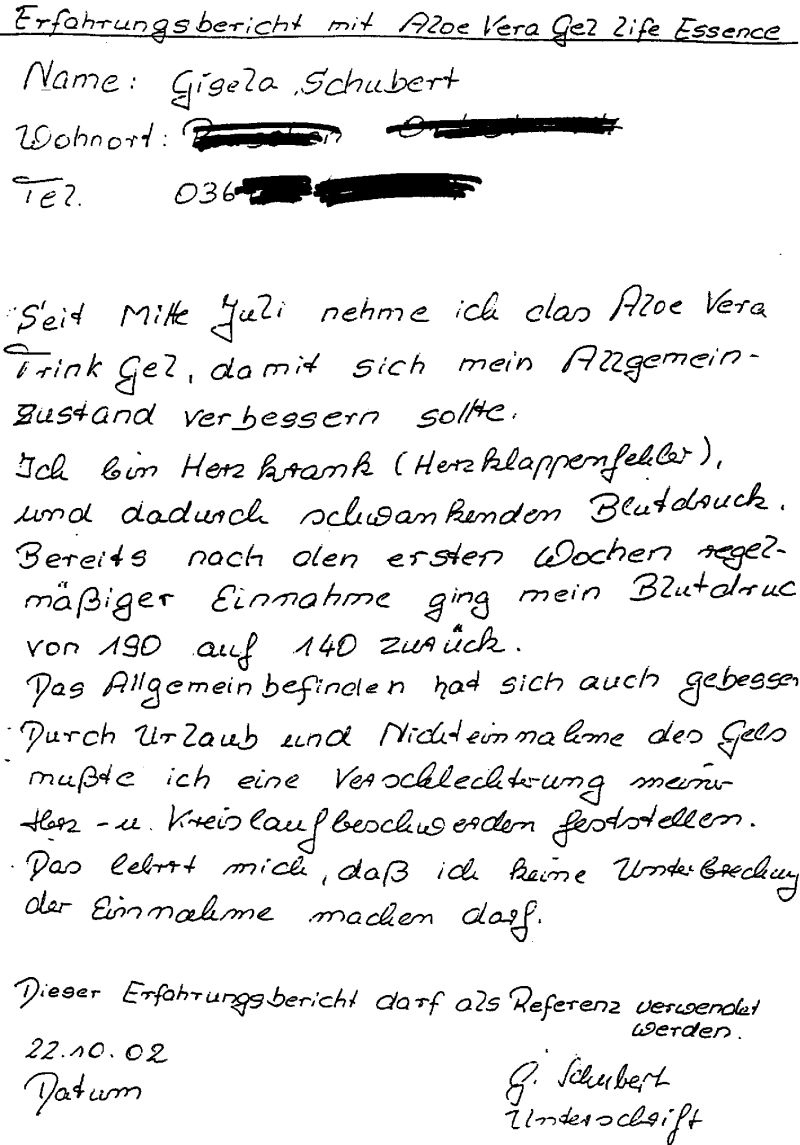 Erfahrungsbericht mit Aloe Vera Gel life Essence
Name: Gisela Schubert
Wohnort:
Tel. 036
Seit Mitte Juli nehme ich das Aloe Vera
Trink Gel, damit sich mein Allgemein-
zustand verbessern sollte.
Ich bin Herzkrank (Herzklappenfehler),
und dadurch schwankenden Blutdruck.
Bereits nach den ersten Wochen regel-
mäßiger Einnahme ging mein Blutdruc
von 190 auf 140 zurück.
Das Allgemeinbefinden hat sich auch gebesser
Durch Urlaub und Nichteinnahme des Gels
mußte ich eine Verschlechterung meiner
Herz-u. Kreislaufbeschwerden feststellen.
Das lehrt mich, daß ich keine Unterbrechung
der Einnahme machen darf.
Dieser Erfahrungsbericht darf als Referenz verwendet
werden.
22.10.02
Datum
G. Schubert
Unterschrift